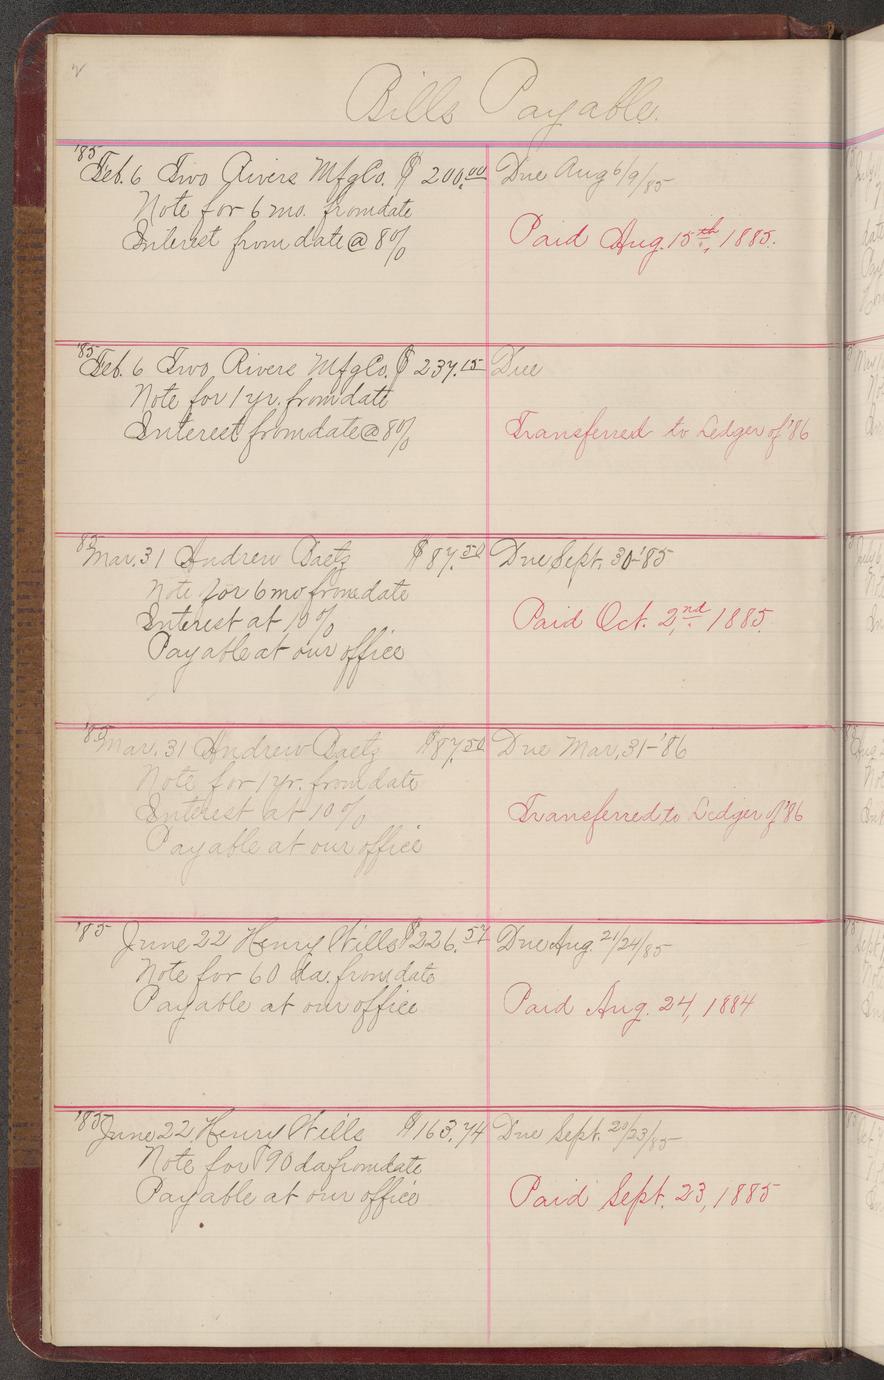 Bills Payable.
'85 Feb. 6 Two Rivers Mfg Co. $ 200.00 Due Aug 6/9/85
Note for 6 mo. from date
Interest from date @ 8% Paid Aug. 15th, 1885.
'85 Feb. 6 Two Rivers Mfg Co. $ 237.15 Due
Note for 1 yr. from date
Interest from date @ 8% Transferred to Ledger of '86
'85 Mar. 31 Andrew Baetz $87.50 Due Sept. 30-'85
Note for 6 mo from date
Interest at 10% Paid Oct. 2nd, 1885.
Payable at our office
'85 Mar. 31 Andrew Baetz $87.50 Due Mar. 31-'86
Note for 1 yr. from date
Interest at 10% Transferred to Ledger of '86
Payable at our office
'85 June 22 Henry Wills $226.57 Due Aug. 21/24/85
Note for 60 da. from date
Payable at our office Paid Aug. 24, 1884
'85 June 22 Henry Wills $163.74 Due Sept. 20/23/85
Note for 90 da from date
Payable at our office Paid Sept. 23, 1885